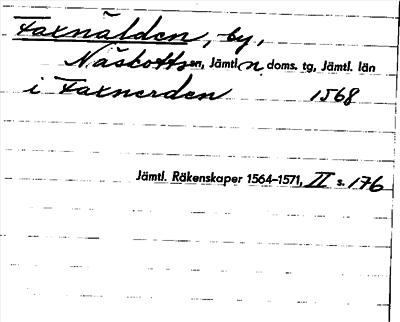 Faxnälden, by,
Näskotts sn, Jämtl. n. doms. tg, Jämtl. län
i Faxnerden 1568
Jämtl. Räkenskaper 1564–1571, II s. 176